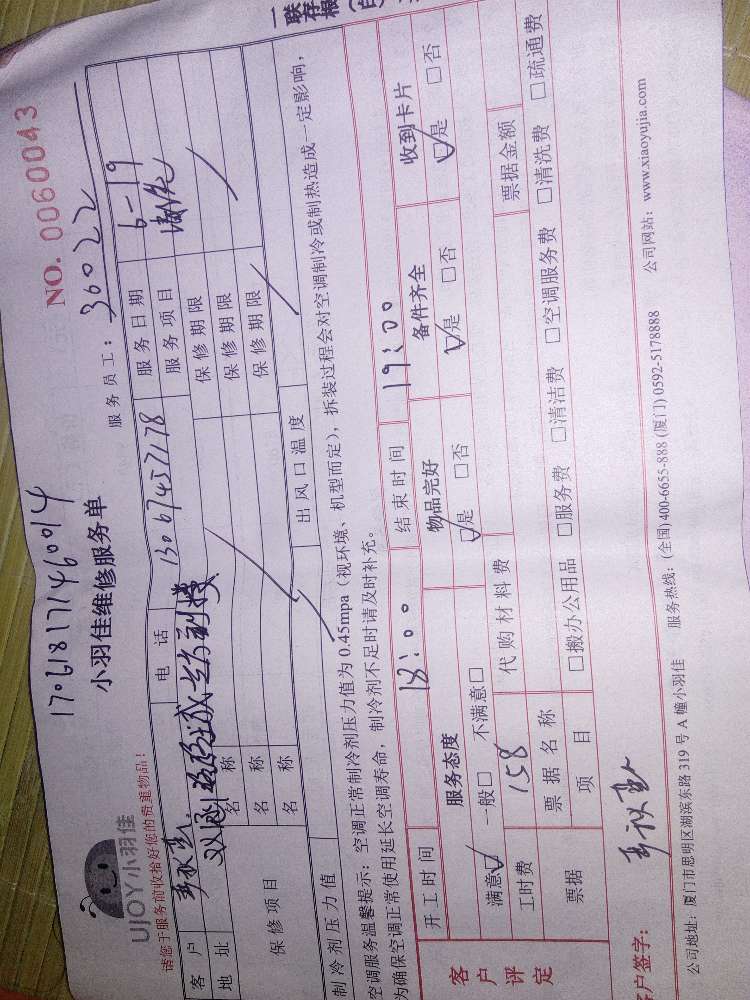 一联存根
NO. 0060043
170618171460014
UJOY小羽佳
小羽佳维修服务单
服务员工：36022
请您于服务前收拾好您的贵重物品！
客户 电话 13067457178 服务日期 6-19
地址 服务项目
保修项目 名称 保修期限
名称 保修期限
名称 保修期限
制冷剂压力值 出风口温度
空调服务温馨提示：空调正常制冷剂压力值为 0.45mpa（视环境、机型而定），拆装过程会对空调制冷或制热造成一定影响，
为确保空调正常使用延长空调寿命，制冷剂不足时请及时补充。
开工时间 18:00 结束时间 19:00
客户评定
服务态度 物品完好 备件齐全 收到卡片
满意☑ 一般□ 不满意□ ☑是 □否 ☑是 □否 ☑是 □否
工时费 158 代购材料费
票据 票据名称 票据金额
项目 □搬办公用品 □服务费 □清洁费 □空调服务费 □清洗费 □疏通费
客户签字：
公司地址：厦门市思明区湖滨东路 319 号 A 幢小羽佳 服务热线：(全国) 400-6655-888 (厦门) 0592-5178888 公司网站：www.xiaoyujia.com